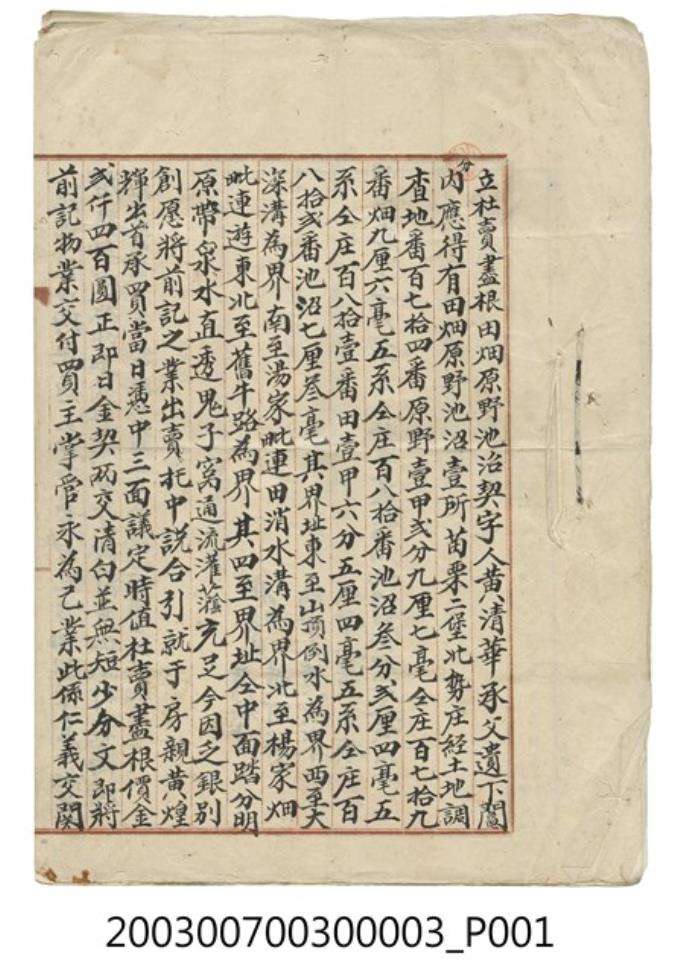 立杜賣盡根田畑原野池沼契字人黃清華承父遺下鬮
分
內應得有田畑原野池沼壹所苗栗二堡北勢庄經土地調
查地番百七拾四番原野壹甲弍分九厘七毫仝庄百七拾九
番畑九厘六毫五系仝庄百八拾番池沼叁分弍厘四毫五
系仝庄百八拾壹番田壹甲六分五厘四毫五系仝庄百
八拾弍番池沼七厘叁毫其界址東至山頂倒水為界西至大
深溝為界南至湯家毗連田消水溝為界北至楊家畑
毗連遊東北至舊牛路為界其四至界址仝中面踏分明
原帶泉水直透鬼子窩通流灌蔭充足今因乏銀別
創愿將前記之業出賣托中説合引就于房親黃煌
輝出首承買當日憑中三面議定時值杜賣盡根價金
弍仟四百圓正即日金契兩交清白並無短少分文即將
前記物業交付買主掌管永為己業此係仁義交関
200300700300003_P001